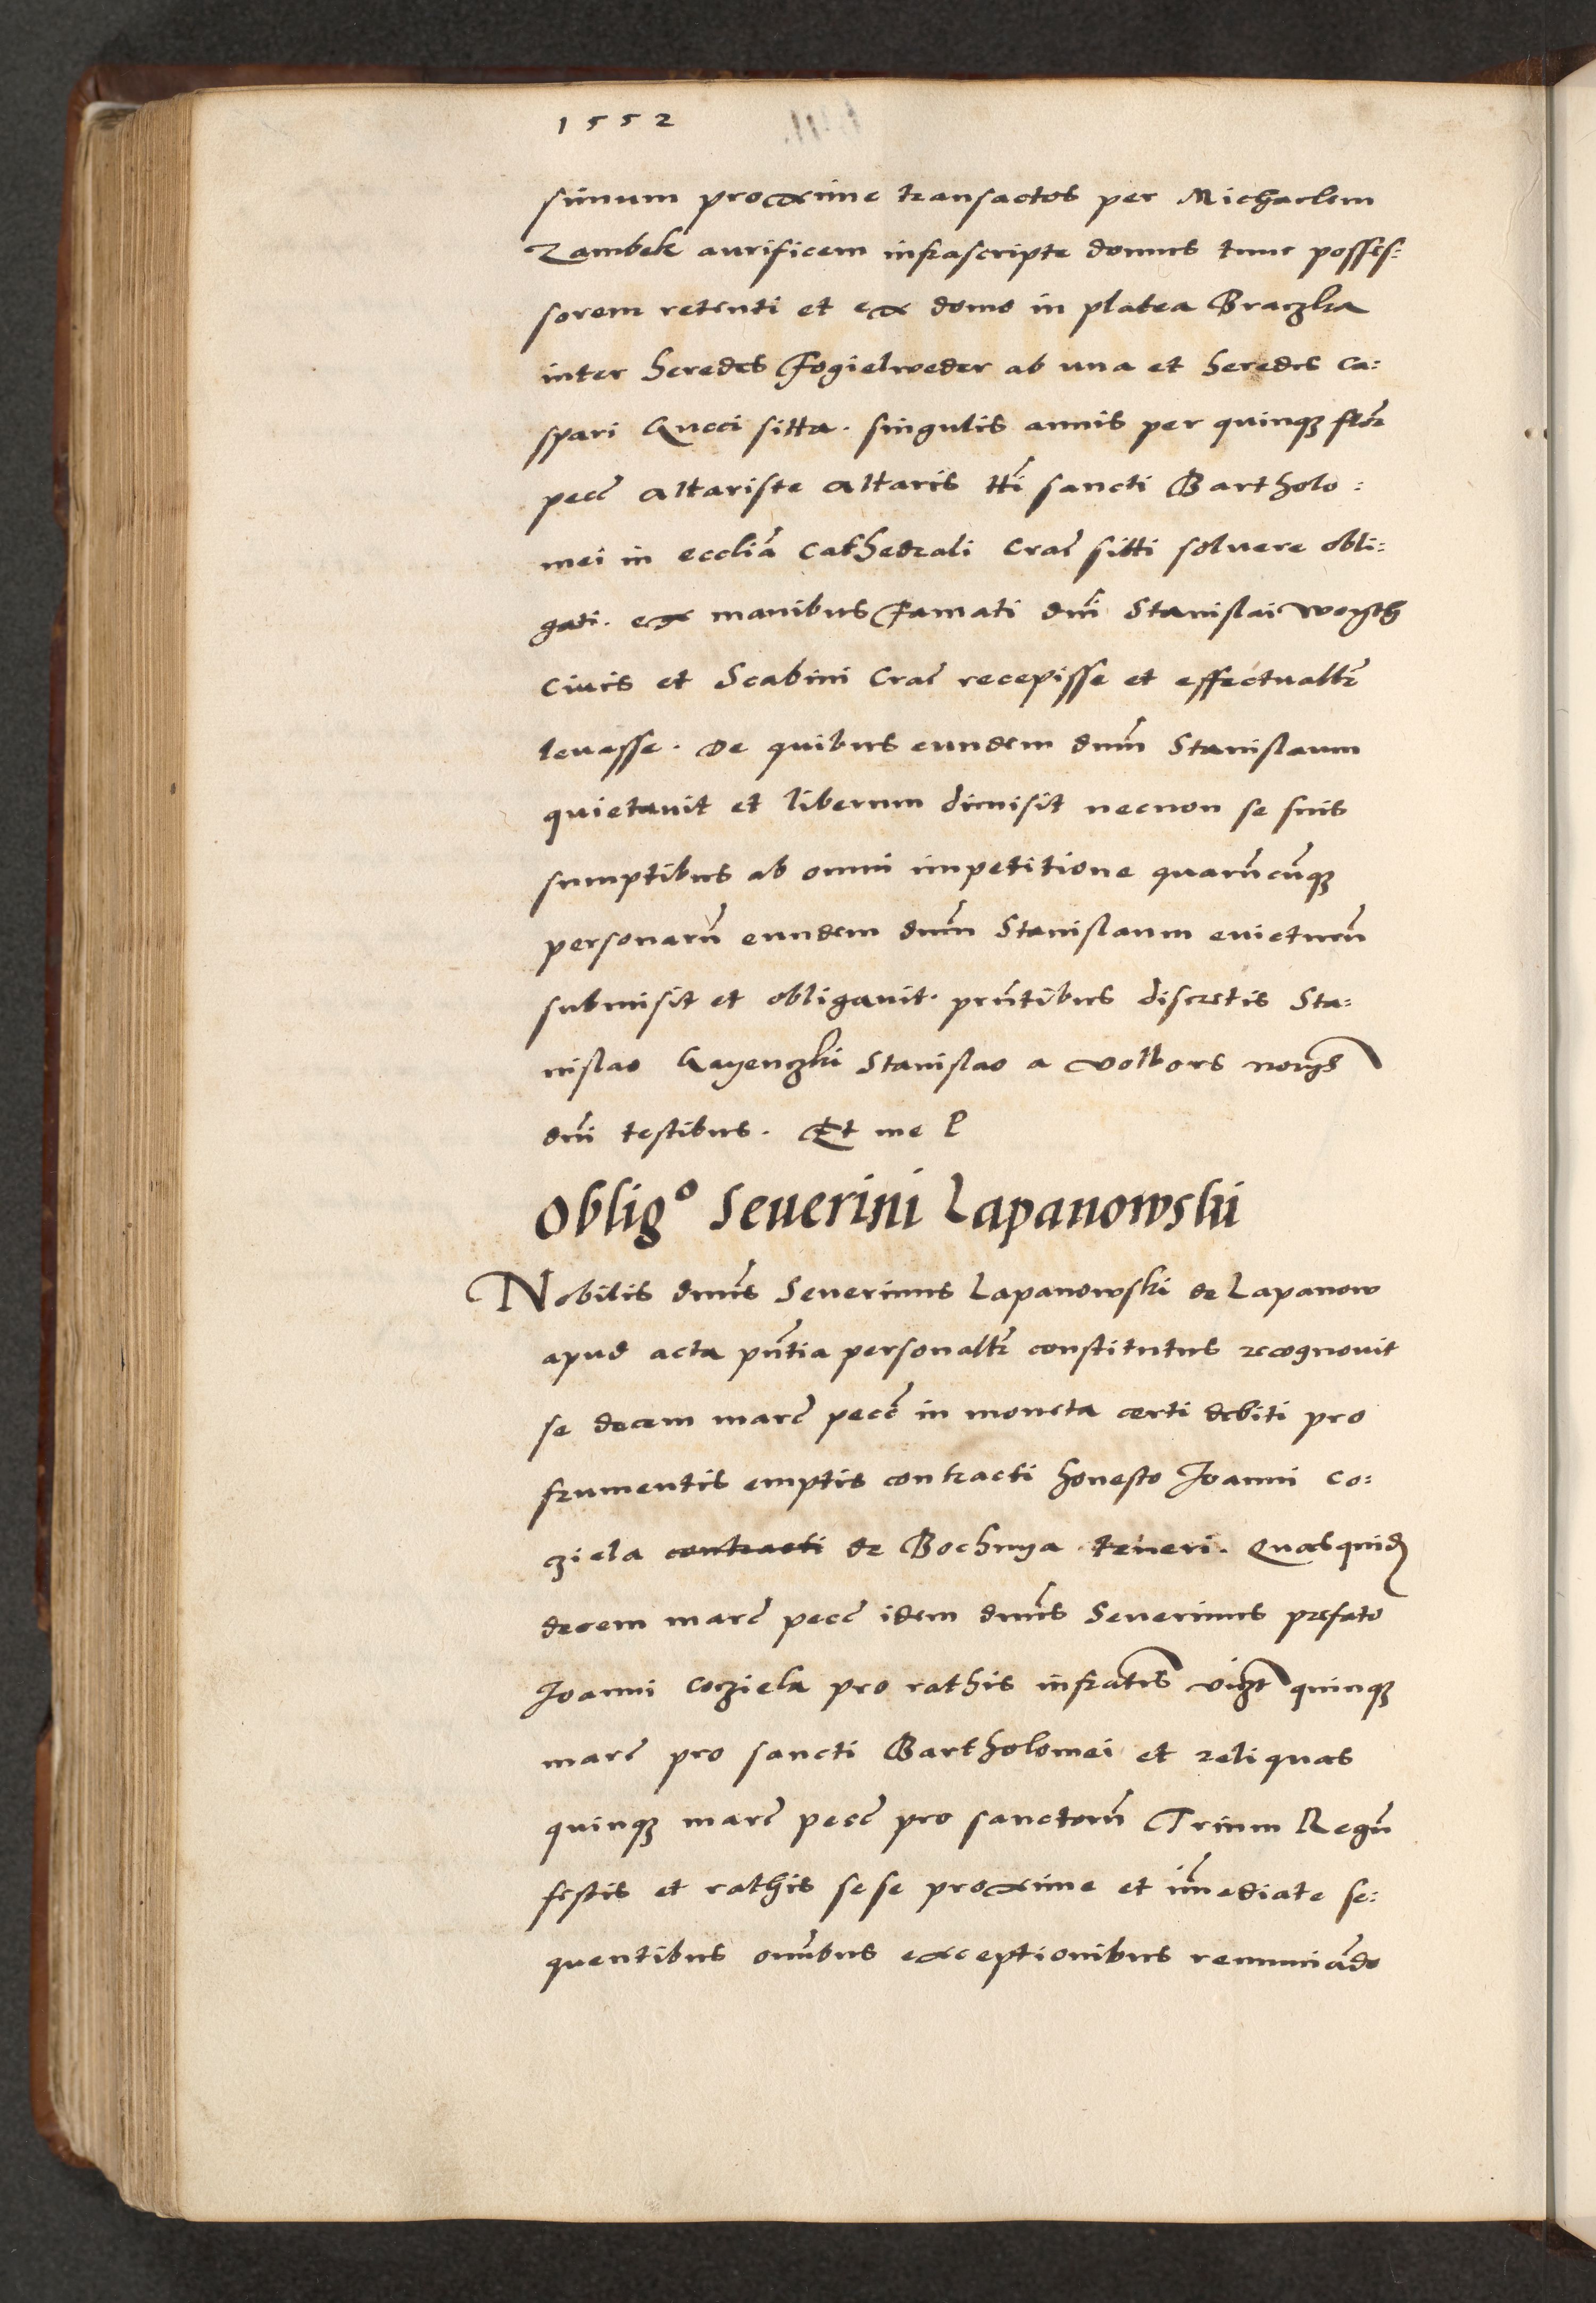 1552
simum proxime transactos per Michaelem
Zambek aurificem infrascripte domus tunc posses:
sorem retenti et ex domo in platea Braczka
inter heredes Fogielweder ab una et heredes Ca:
spari Gucci sitta. singulis annis per quinqz flor̃
pecc̃ altariste altaris tt̃i sancti Bartholo:
mei in eccliã Cathedrali Crac̃ sitti solvere obli:
gati. ex manibus Famati dñi Stanislai Woysth
Civis et Scabini Crac̃ recepisse et effectualtr̃
levasse. De quibus eundem dnm̃ Stanislaum
quietavit et liberum dimisit necnon se suis
sumptibus ab omni impetitione quarũcũqz
personarũ eundem dnm̃ Stanislaum evicturũ
submisit et obligavit. prñtibus discretis Sta:
nislao Gayenczki Stanislao a Volbors
dñi testibus. Et me P
Oblig° Severini Lapanowski
Nobilis dnũs Severinus Lapanowski de Lapanow
apud acta pñtia personaltr̃ constitutus recognovit
se decem marc̃ pecc̃ in moneta certi debiti pro
frumentis emptis contracti honesto Joanni Co:
cziela contracti de Bochnya teneri. Quasquid
decem marc̃ pecc̃ idem dnũs Severinus prefato
Joanni Cocziela pro rathis infratis vizt quinqz
marc̃ pro sancti Bartholomei et reliquas
quinqz marc̃ pecc̃ pro sanctorũ Trium Regũ
festis et rathis sese proxime et im̃ediate se:
quentibus omñbus exceptionibus renunciãdo